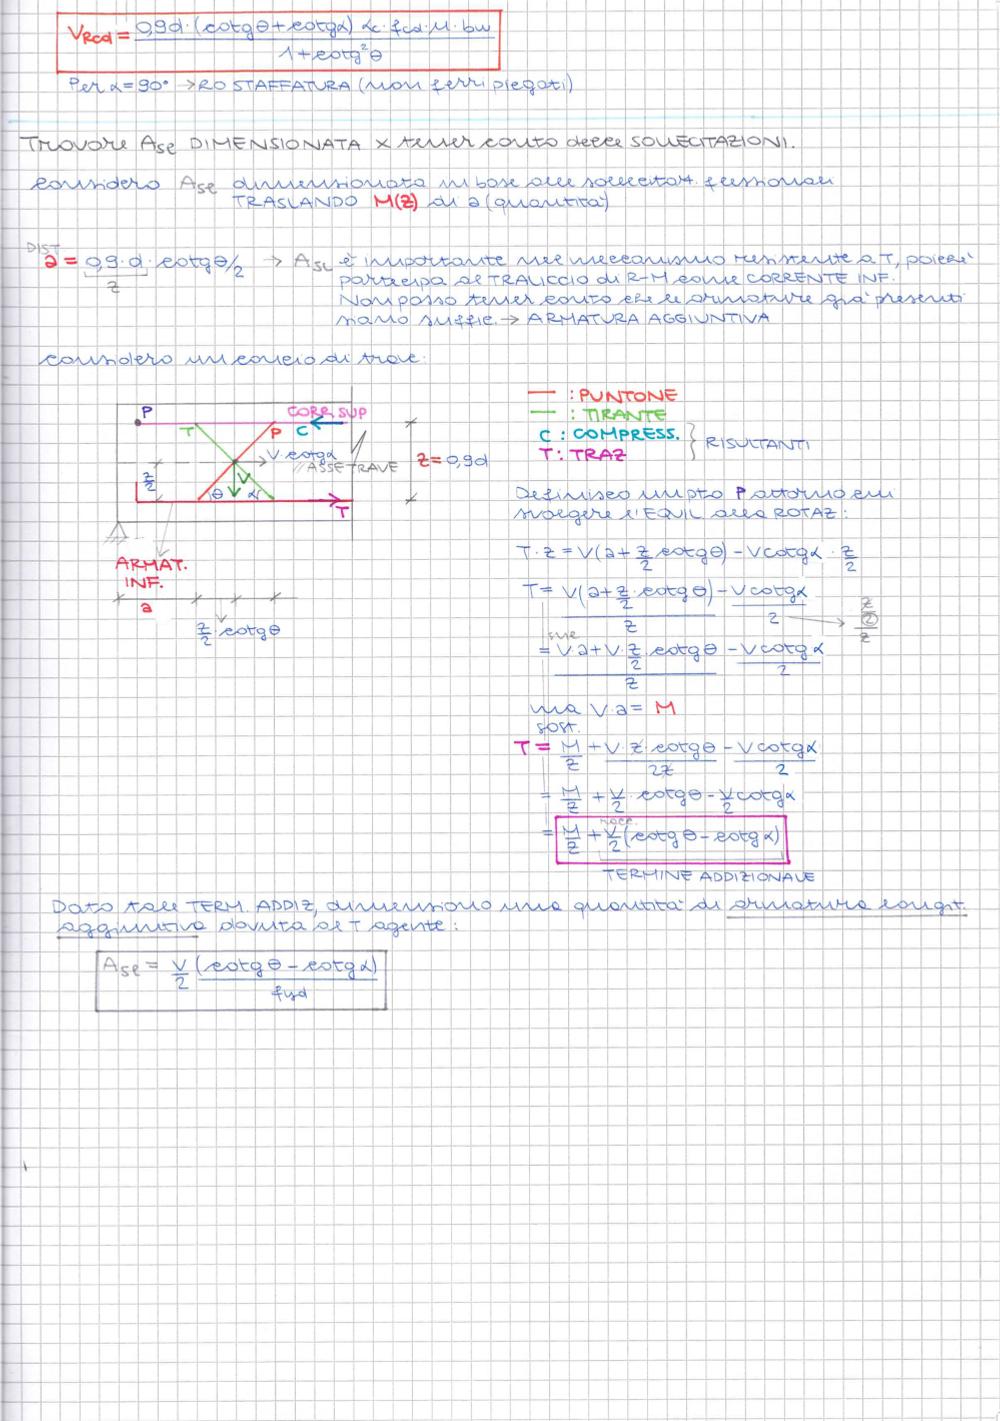 VRcd = 0,9d·(cotgθ+cotgα) αc·fcd·μ·bw / 1+cotg²θ
Per α=90° → RO STAFFATURA (non ferri piegati)
Trovare Ase DIMENSIONATA x tener conto delle SOLLECITAZIONI.
considero Ase dimensionata in base alle sollecitaz. flessionali
TRASLANDO M(z) di a (quantità)
DIST
a = 0,9·d·cotgθ/2 → Ase è importante nel meccanismo resistente a T, poiché
z
partecipa al TRALICCIO di R-M come CORRENTE INF.
Non posso tener conto che le armature già presenti
siano suffic. → ARMATURA AGGIUNTIVA
considero un concio di trave:
P
CORR. SUP
T
P
C
V·cotgα
ASSE TRAVE
z = 0,9d
z/2
θ
V
α
T
ARMAT.
INF.
a
z/2 cotgθ
— : PUNTONE
— : TIRANTE
C : COMPRESS.
T : TRAZ
} RISULTANTI
Definisco un pto P attorno cui
svolgere l'EQUIL alla ROTAZ:
T·z = V(a+z/2 cotgθ) - Vcotgα · z/2
T = V(a+z/2·cotgθ)/z - Vcotgα/2 → z/2/z
= V·a+V·z/2·cotgθ/z - Vcotgα/2
ma V·a = M
sost.
T = M/z + V·z·cotgθ/2z - Vcotgα/2
= M/z + V/2·cotgθ - V/2 cotgα
racc.
= M/z + V/2 (cotgθ - cotgα)
TERMINE ADDIZIONALE
Dato tale TERM. ADDIZ, dimensiono una quantità di armatura longit.
aggiuntiva dovuta al T agente:
Ase = V/2 (cotgθ - cotgα)/fyd